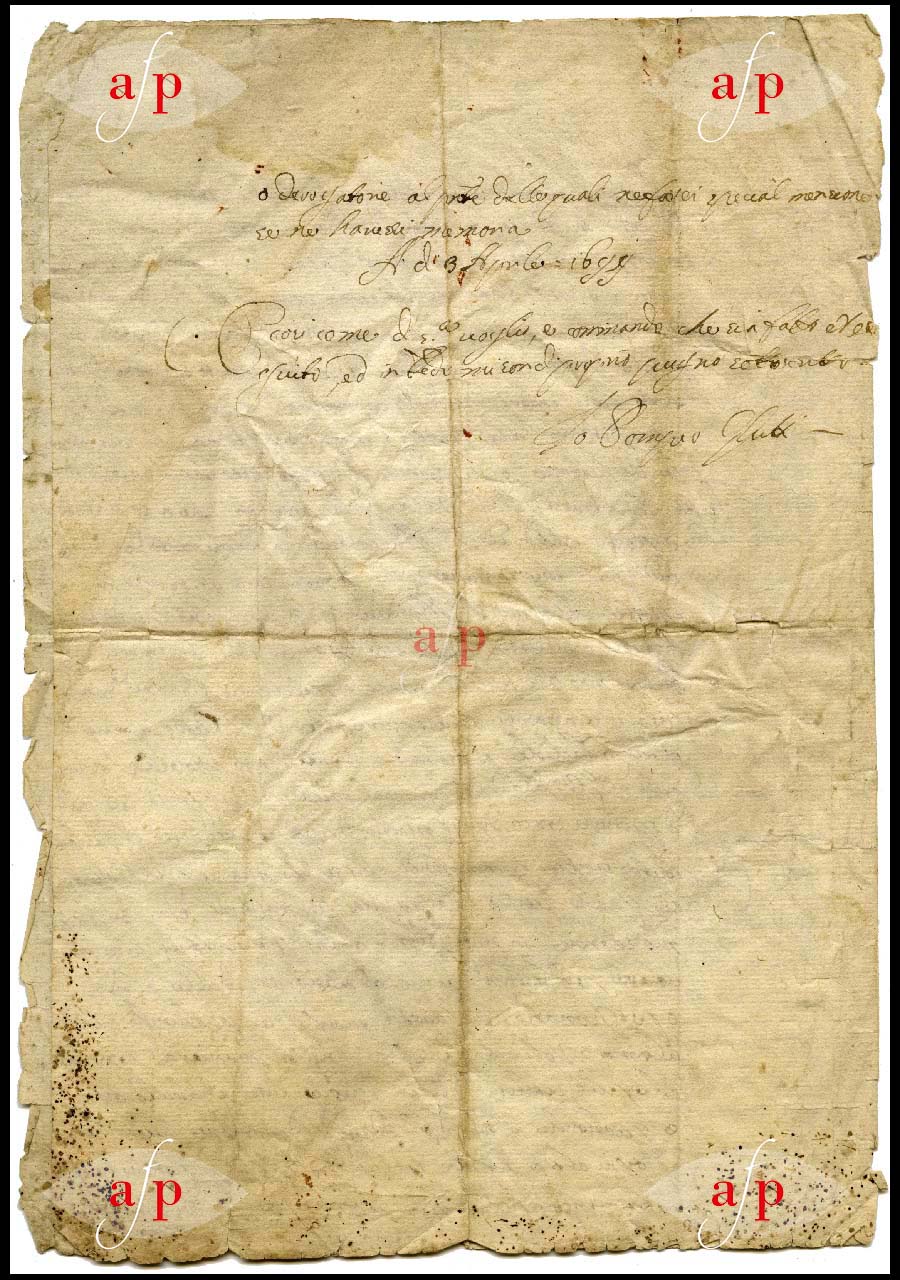 afp afp
o derogatorie al pnte delle quali ne farei special mentione
se ne havessi memoria
A di 3 Aprile 1699
E così come di sa voglio, e commando che sia fatto, et es
eguito, ed in fede mi son di proprio pugno sottoscritto
Io Pompeo
afp
afp afp